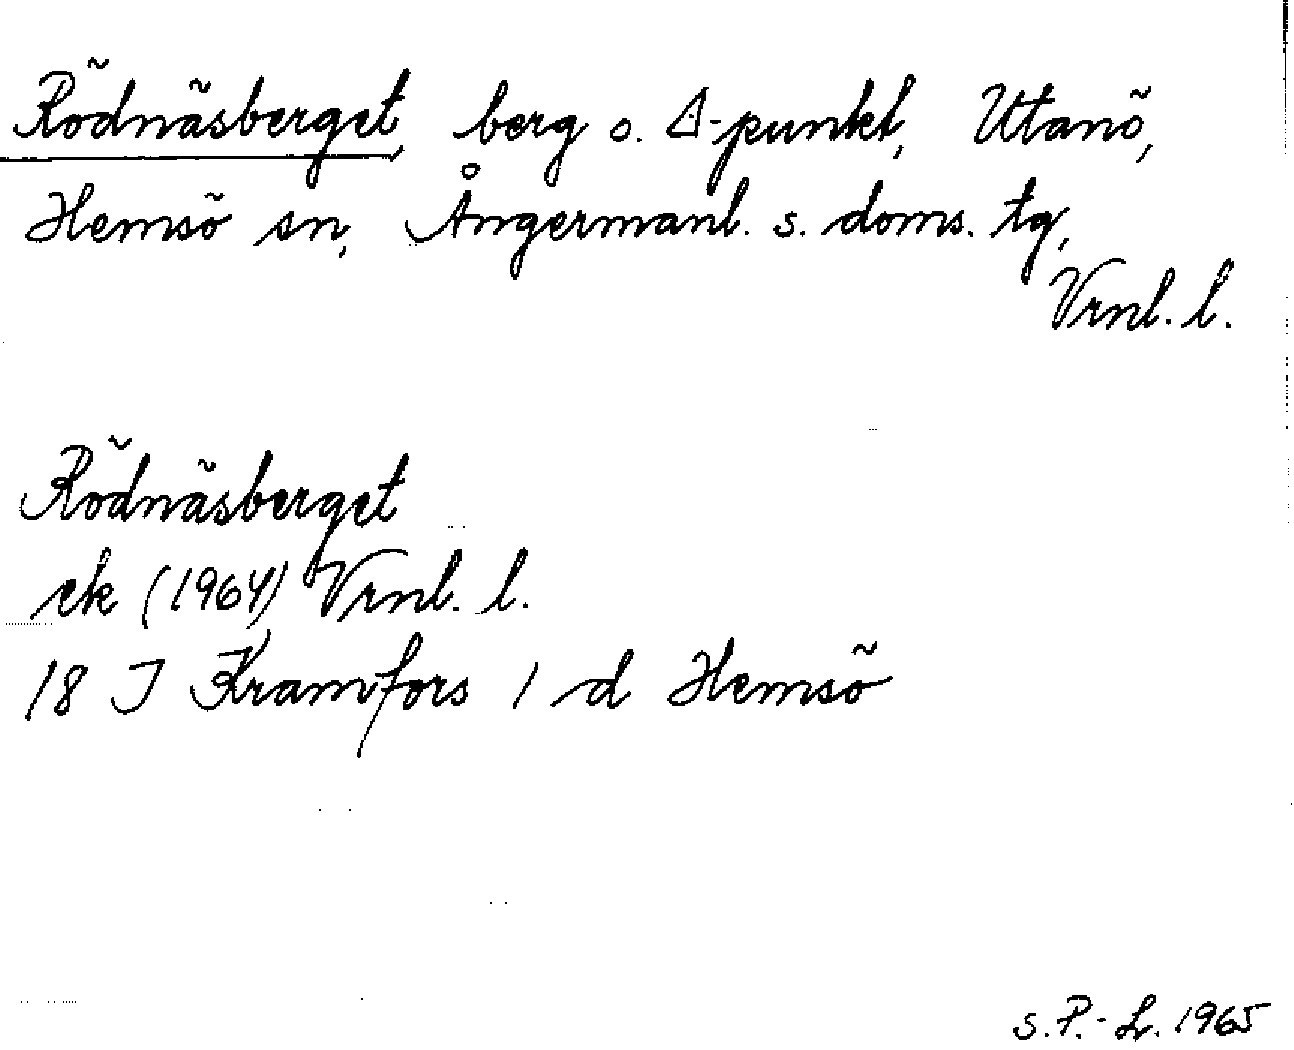 Rödnäsberget, berg o. Δ-punkt, Utanö,
Hemsö sn, Ångermanl. s. doms. tg,
Vrnl. l.
Rödnäsberget
ek (1964) Vrnl. l.
18 I Kramfors 1 d Hemsö
s. P.-L. 1965